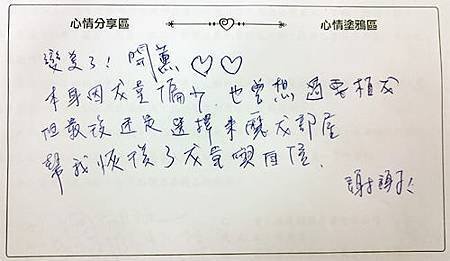 心情分享區 心情塗鴉區
變美了! 開薰 ♡♡
本身因发量偏少,也曾想過要植发
但最後还是選擇來魔发部屋
幫我恢復了发量與自信.
謝謝!